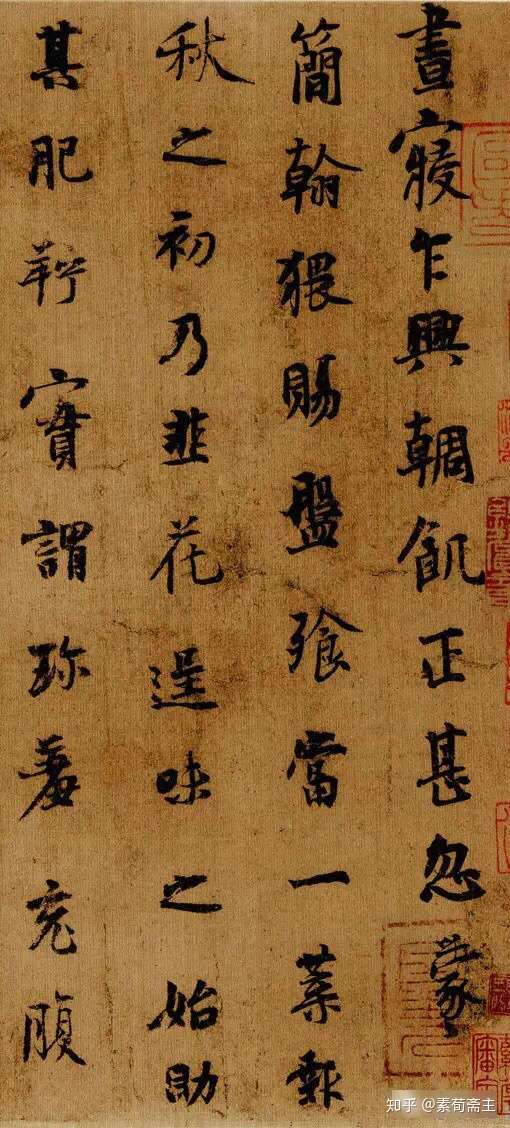 晝寢乍興輖飢正甚忽蒙
簡翰猥賜盤飧當一葉報
秋之初乃韭花逞味之始助
其肥羜實謂珍羞充腹
知乎 @素荀斋主